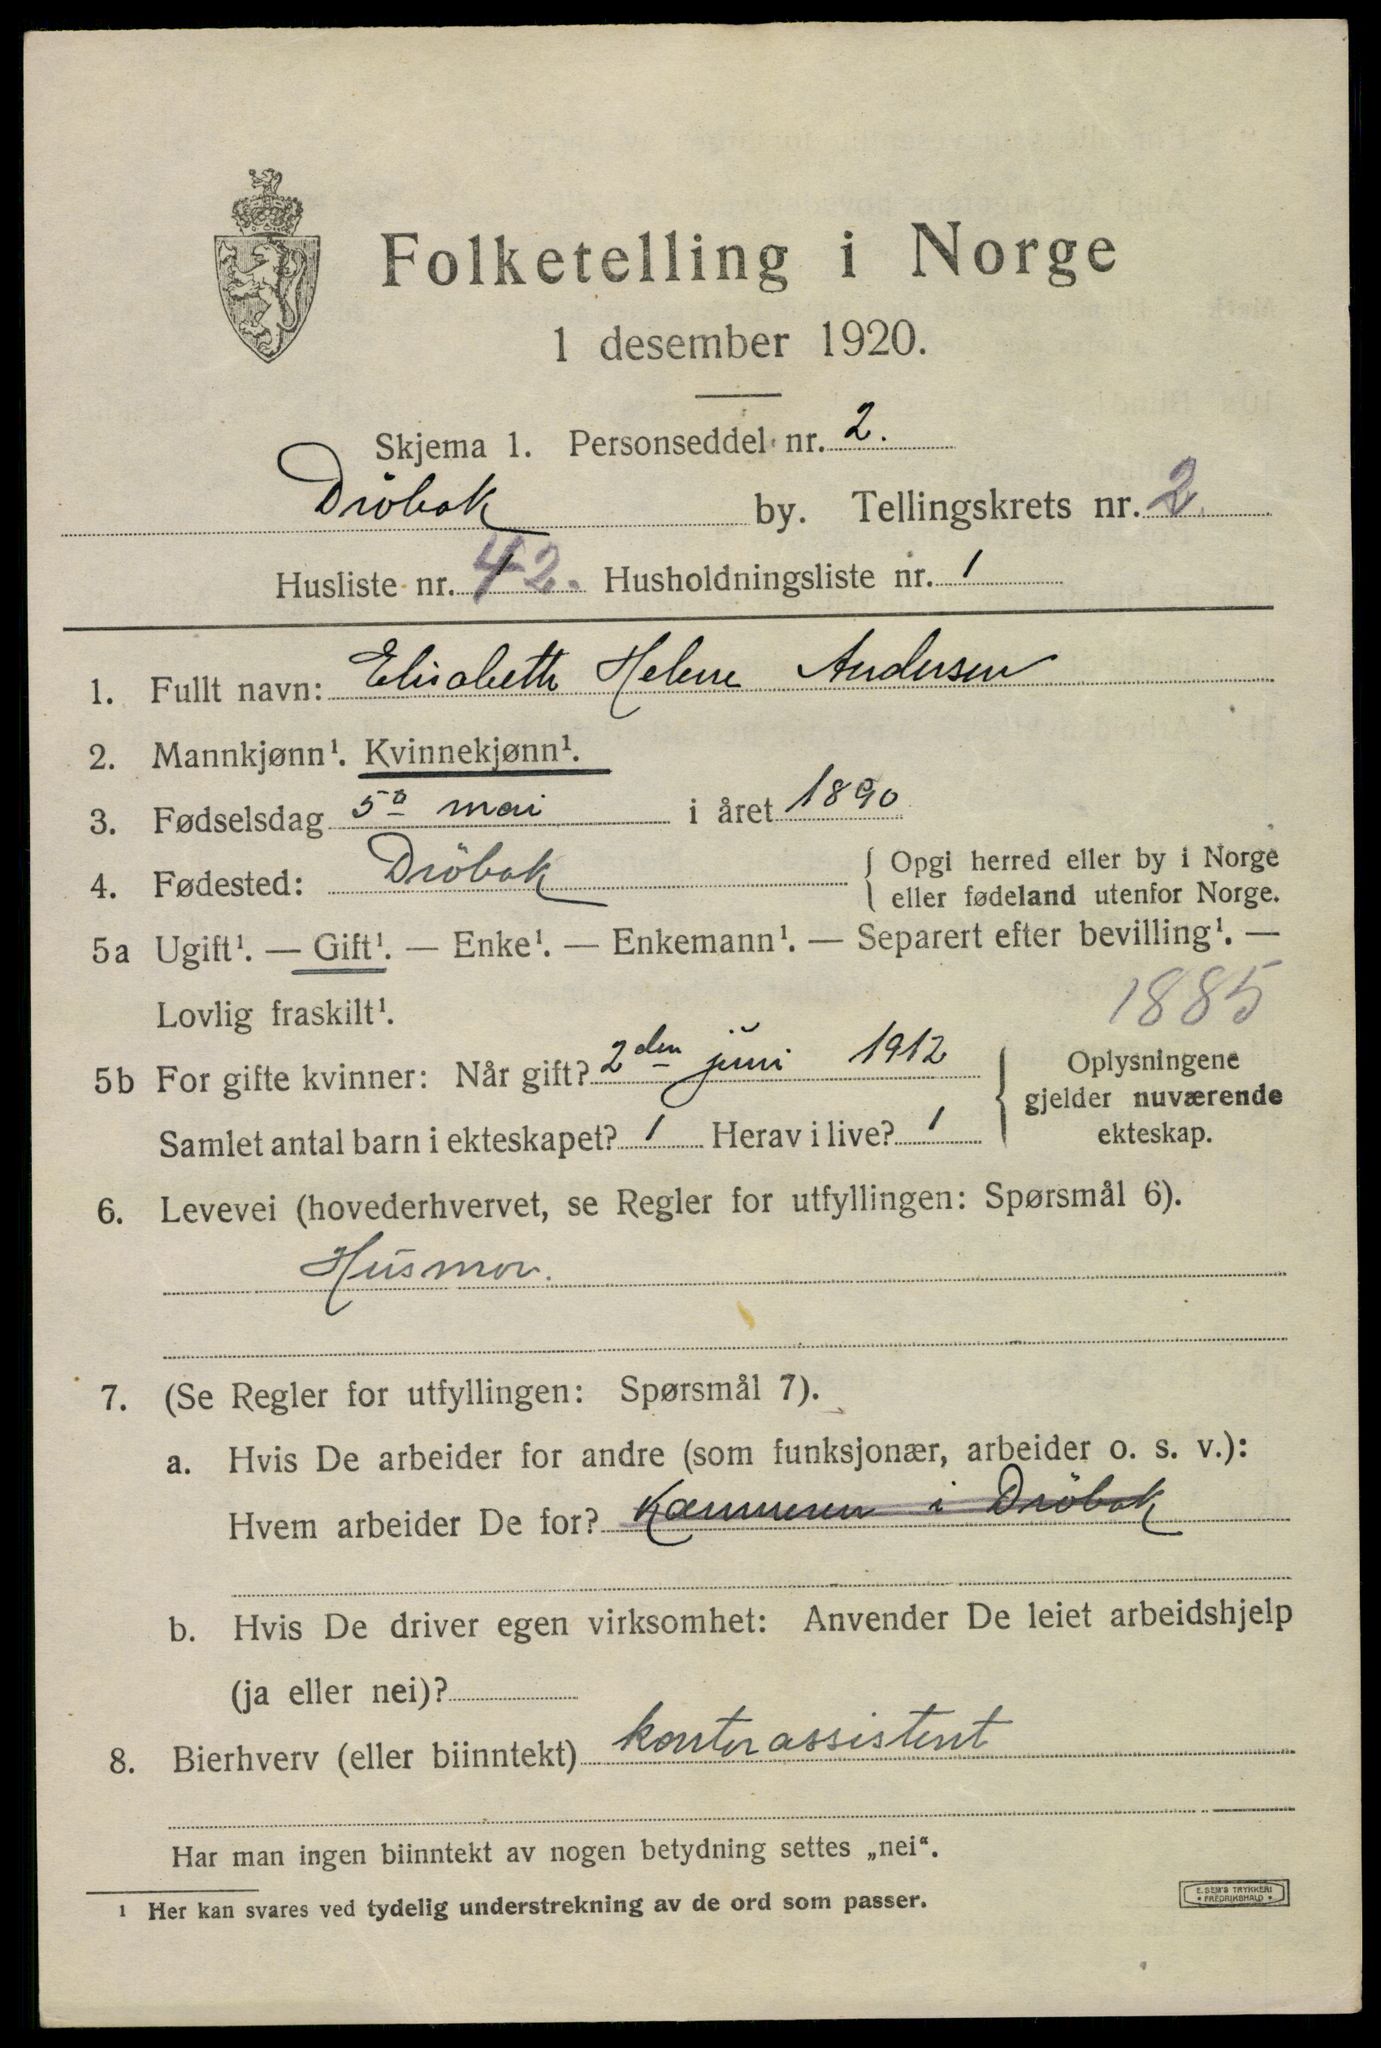 Folketelling i Norge
1 desember 1920.
Skjema 1. Personseddel nr. 2.
Dröbak by. Tellingskrets nr. 2.
Husliste nr. 42. Husholdningsliste nr. 1
1. Fullt navn: Elisabeth Helene Andersen
2. Mannkjønn¹. Kvinnekjønn¹.
3. Fødselsdag 5º mai i året 1890
4. Fødested: Dröbak { Opgi herred eller by i Norge
eller fødeland utenfor Norge.
5a Ugift¹. — Gift¹. — Enke¹. — Enkemann¹. — Separert efter bevilling¹. —
Lovlig fraskilt¹. 1885
5b For gifte kvinner: Når gift? 2den juni 1912
Samlet antal barn i ekteskapet? 1 Herav i live? 1
{ Oplysningene
gjelder nuværende
ekteskap.
6. Levevei (hovederhvervet, se Regler for utfyllingen: Spørsmål 6).
Husmor.
7. (Se Regler for utfyllingen: Spørsmål 7).
a. Hvis De arbeider for andre (som funksjonær, arbeider o. s. v.):
Hvem arbeider De for? Kæmneren i Dröbak
b. Hvis De driver egen virksomhet: Anvender De leiet arbeidshjelp
(ja eller nei)?
8. Bierhverv (eller biinntekt) kontorassistent
Har man ingen biinntekt av nogen betydning settes „nei“.
¹ Her kan svares ved tydelig understrekning av de ord som passer.
E. SEM'S TRYKKERI
• FREDRIKSHALD •